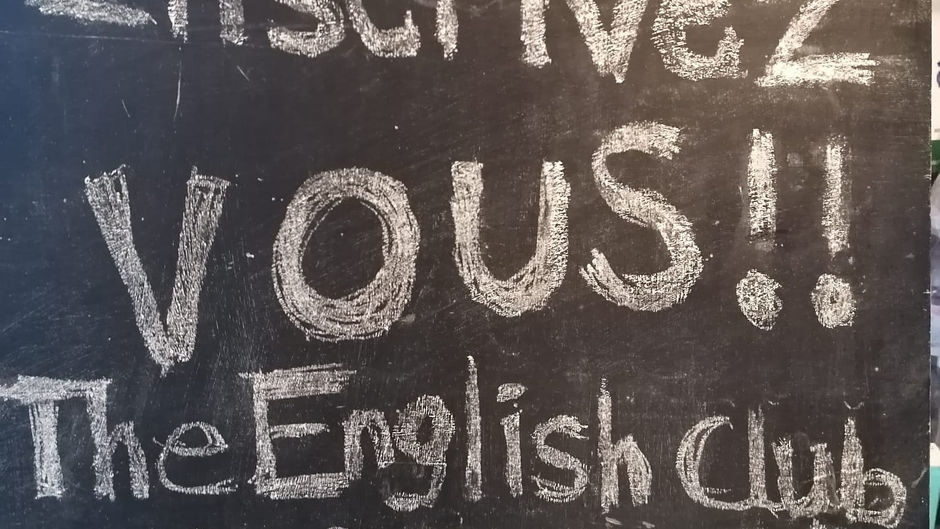 Inscrivez
VOUS!!
The English Club